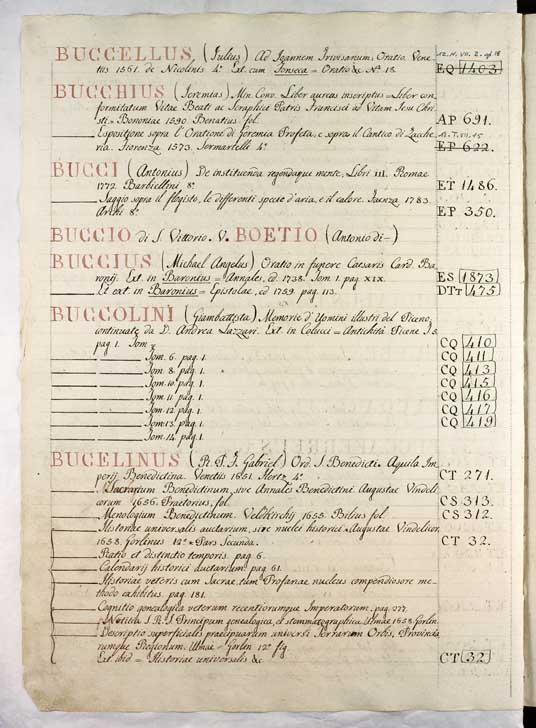 12. N. VII. 2. op 18
BUCCELLUS (Julius) Ad Joannem Trivisanum, Oratio. Vene-
tiis 1561. de Nicolinis 4.° Ext. cum Fonseca = Oratio &c. N.° 18. EQ 1403
BUCCHIUS (Jeremias) Min. Conv. Liber aureus inscriptus = Liber con-
formitatum Vitae Beati ac Seraphici Patris Francisci ad Vitam Jesu Chri-
sti = Bononiae 1590 Benatius fol. AP 691.
Espositione sopra l'Oratione di Geremia Profeta, e sopra il Cantico di Zacche- 11. T. VII. 15
ria. Fiorenza 1573. Sermartelli 4.° EP 622.
BUCCI (Antonius) De instituenda regendaque mente, Libri III. Romae
1772. Barbiellini 8.° ET 1486.
Saggio sopra il flogisto, le differenti specie d'aria, e il calore. Faenza 1783.
Archi 8.° EP 350.
BUCCIO di S. Vittorio. V. BOETIO (Antonio di—)
BUCCIUS (Michael Angelus) Oratio in funere Caesaris Card. Ba-
ronij. Ext. in Baronius = Annales, ed. 1738. Tom. 1. pag. XIX. ES 1873
Et ext. in Baronius = Epistolae, ed 1759. pag. 113. DTT 475
BUCCOLINI (Giambattista) Memorie d'Uomini illustri del Piceno,
continuate da D. Andrea Lazzari. Ext. in Colucci = Antichità Picene T. 5.
pag 1. Tom CQ 410
Tom. 6. pag. 1. CQ 411
Tom. 8. pag. 1. CQ 413
Tom. 10. pag. 1. CQ 415
Tom. 11. pag. 1. CQ 416
Tom. 12. pag. 1. CQ 417
Tom. 13. pag. 1. CQ 419
Tom. 14. pag. 1.
BUCELINUS (R. P. F. Gabriel) Ord. S. Benedicti. Aquila Im-
perij Benedictina. Venetiis 1651. Hertz 4.° CT 271.
Sacrarium Benedictinum, sive Annales Benedictini. Augustae Vindeli-
corum 1656. Praetorius, fol. CS 313.
Menologium Benedictinum. Veldkirchij 1655. Bilius fol. CS 312.
Historiae universalis auctarium, sive nuclei historici. Augustae Vindelicor.
1658. Gorlinus 12.° Pars Secunda. CT 32.
Ratio et distinctio temporis. pag. 6.
Calendarij historici auctarium. pag. 61.
Historiae veteris cum Sacrae, tum Profanae nucleus compendiosore me-
thodo exhibitus. pag. 181.
Cognitio genealogica veterum recentiorumque Imperatorum. pag. 277.
Notitia S. R. I. Principum genealogica, et stemmatographica. Ulmae 1658. Gorlin.
Descriptio superficialis praecipuarum universi Terrarum Orbis, Provincia-
rumque Regionum. Ulmae = Gorlin 12.° fig.
Ext. ibid = Historiae universalis &c. CT 32